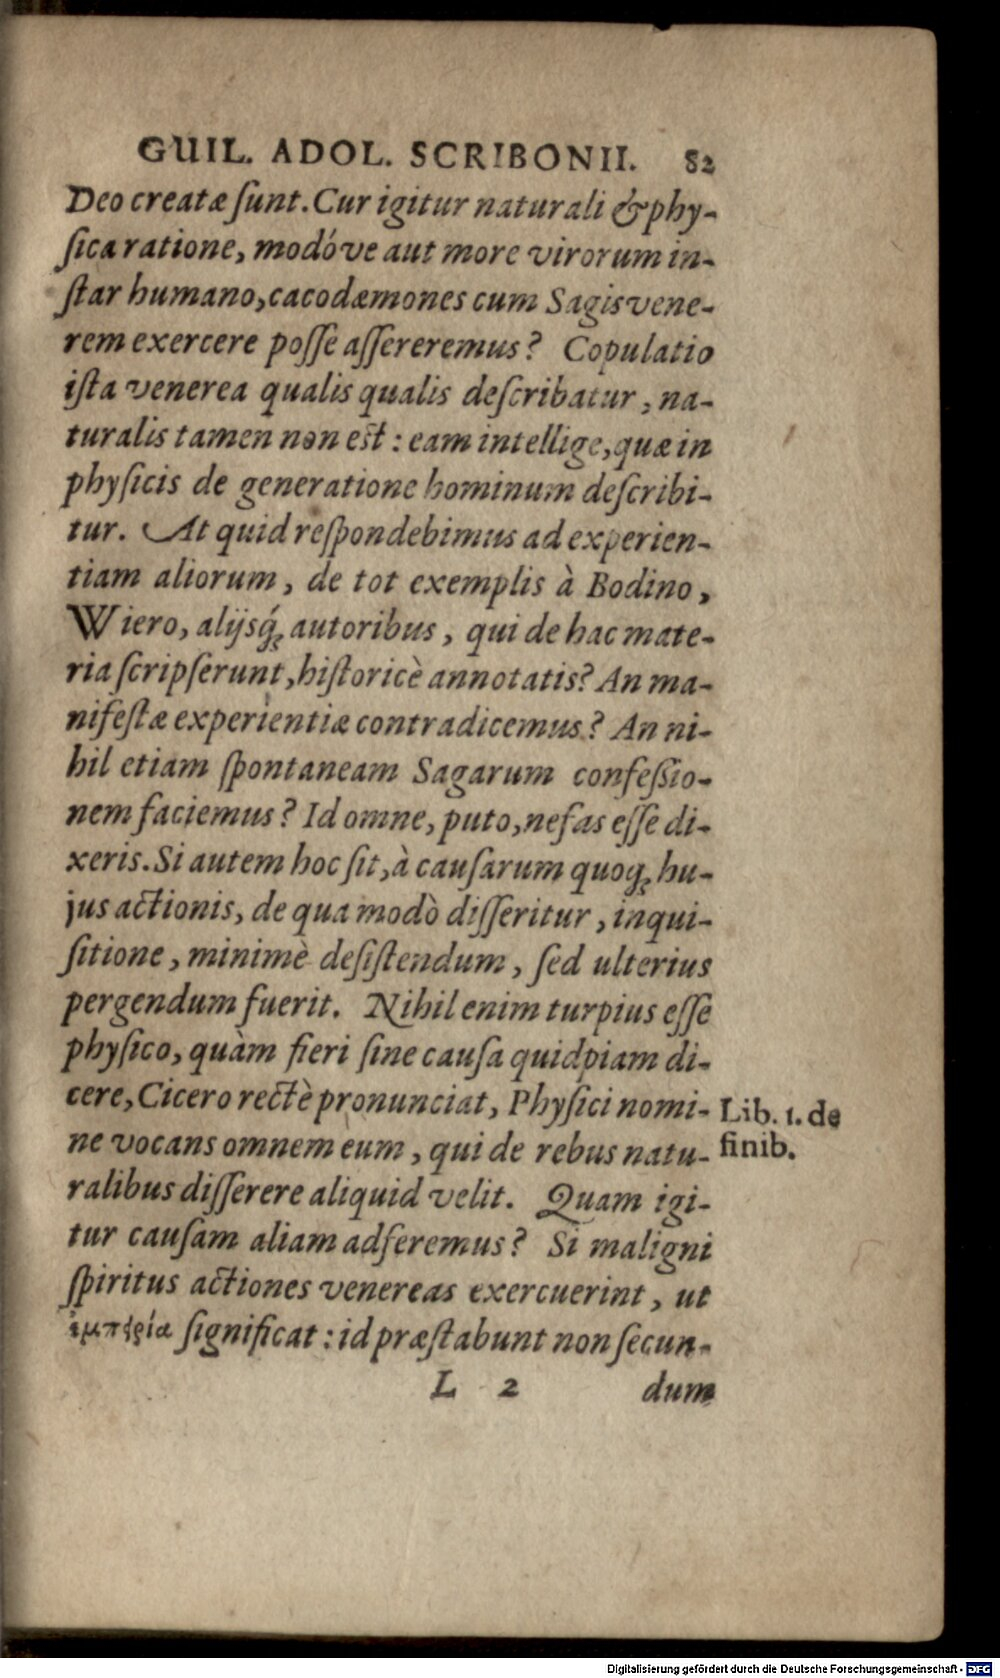 GUIL. ADOL. SCRIBONII. 82
Deo creatæ ſunt. Cur igitur naturali & phy-
ſica ratione, modóve aut more virorum in-
ſtar humano, cacodæmones cum Sagis vene-
rem exercere poſſe aſſereremus? Copulatio
iſta venerea qualis qualis deſcribatur, na-
turalis tamen non eſt: eam intellige, quæ in
phyſicis de generatione hominum deſcribi-
tur. At quid reſpondebimus ad experien-
tiam aliorum, de tot exemplis à Bodino,
Wiero, alijsq́ꝫ autoribus, qui de hac mate-
ria ſcripſerunt, hiſtoricè annotatis? An ma-
nifeſtæ experientiæ contradicemus? An ni-
hil etiam ſpontaneam Sagarum confeßio-
nem faciemus? Id omne, puto, nefas eſſe di-
xeris. Si autem hoc ſit, à cauſarum quoqꝫ hu-
jus actionis, de qua modò diſſeritur, inqui-
ſitione, minimè deſiſtendum, ſed ulterius
pergendum fuerit. Nihil enim turpius eſſe
phyſico, quàm fieri ſine cauſa quidpiam di-
cere, Cicero rectè pronunciat, Phyſici nomi-
ne vocans omnem eum, qui de rebus natu-
ralibus diſſerere aliquid velit. Quam igi-
tur cauſam aliam adferemus? Si maligni
ſpiritus actiones venereas exercuerint, ut
ἐμπειρία ſignificat: id præſtabunt non ſecun-
L 2 dum
Lib. 1. de
finib.
Digitalisierung gefördert durch die Deutsche Forschungsgemeinschaft - DFG